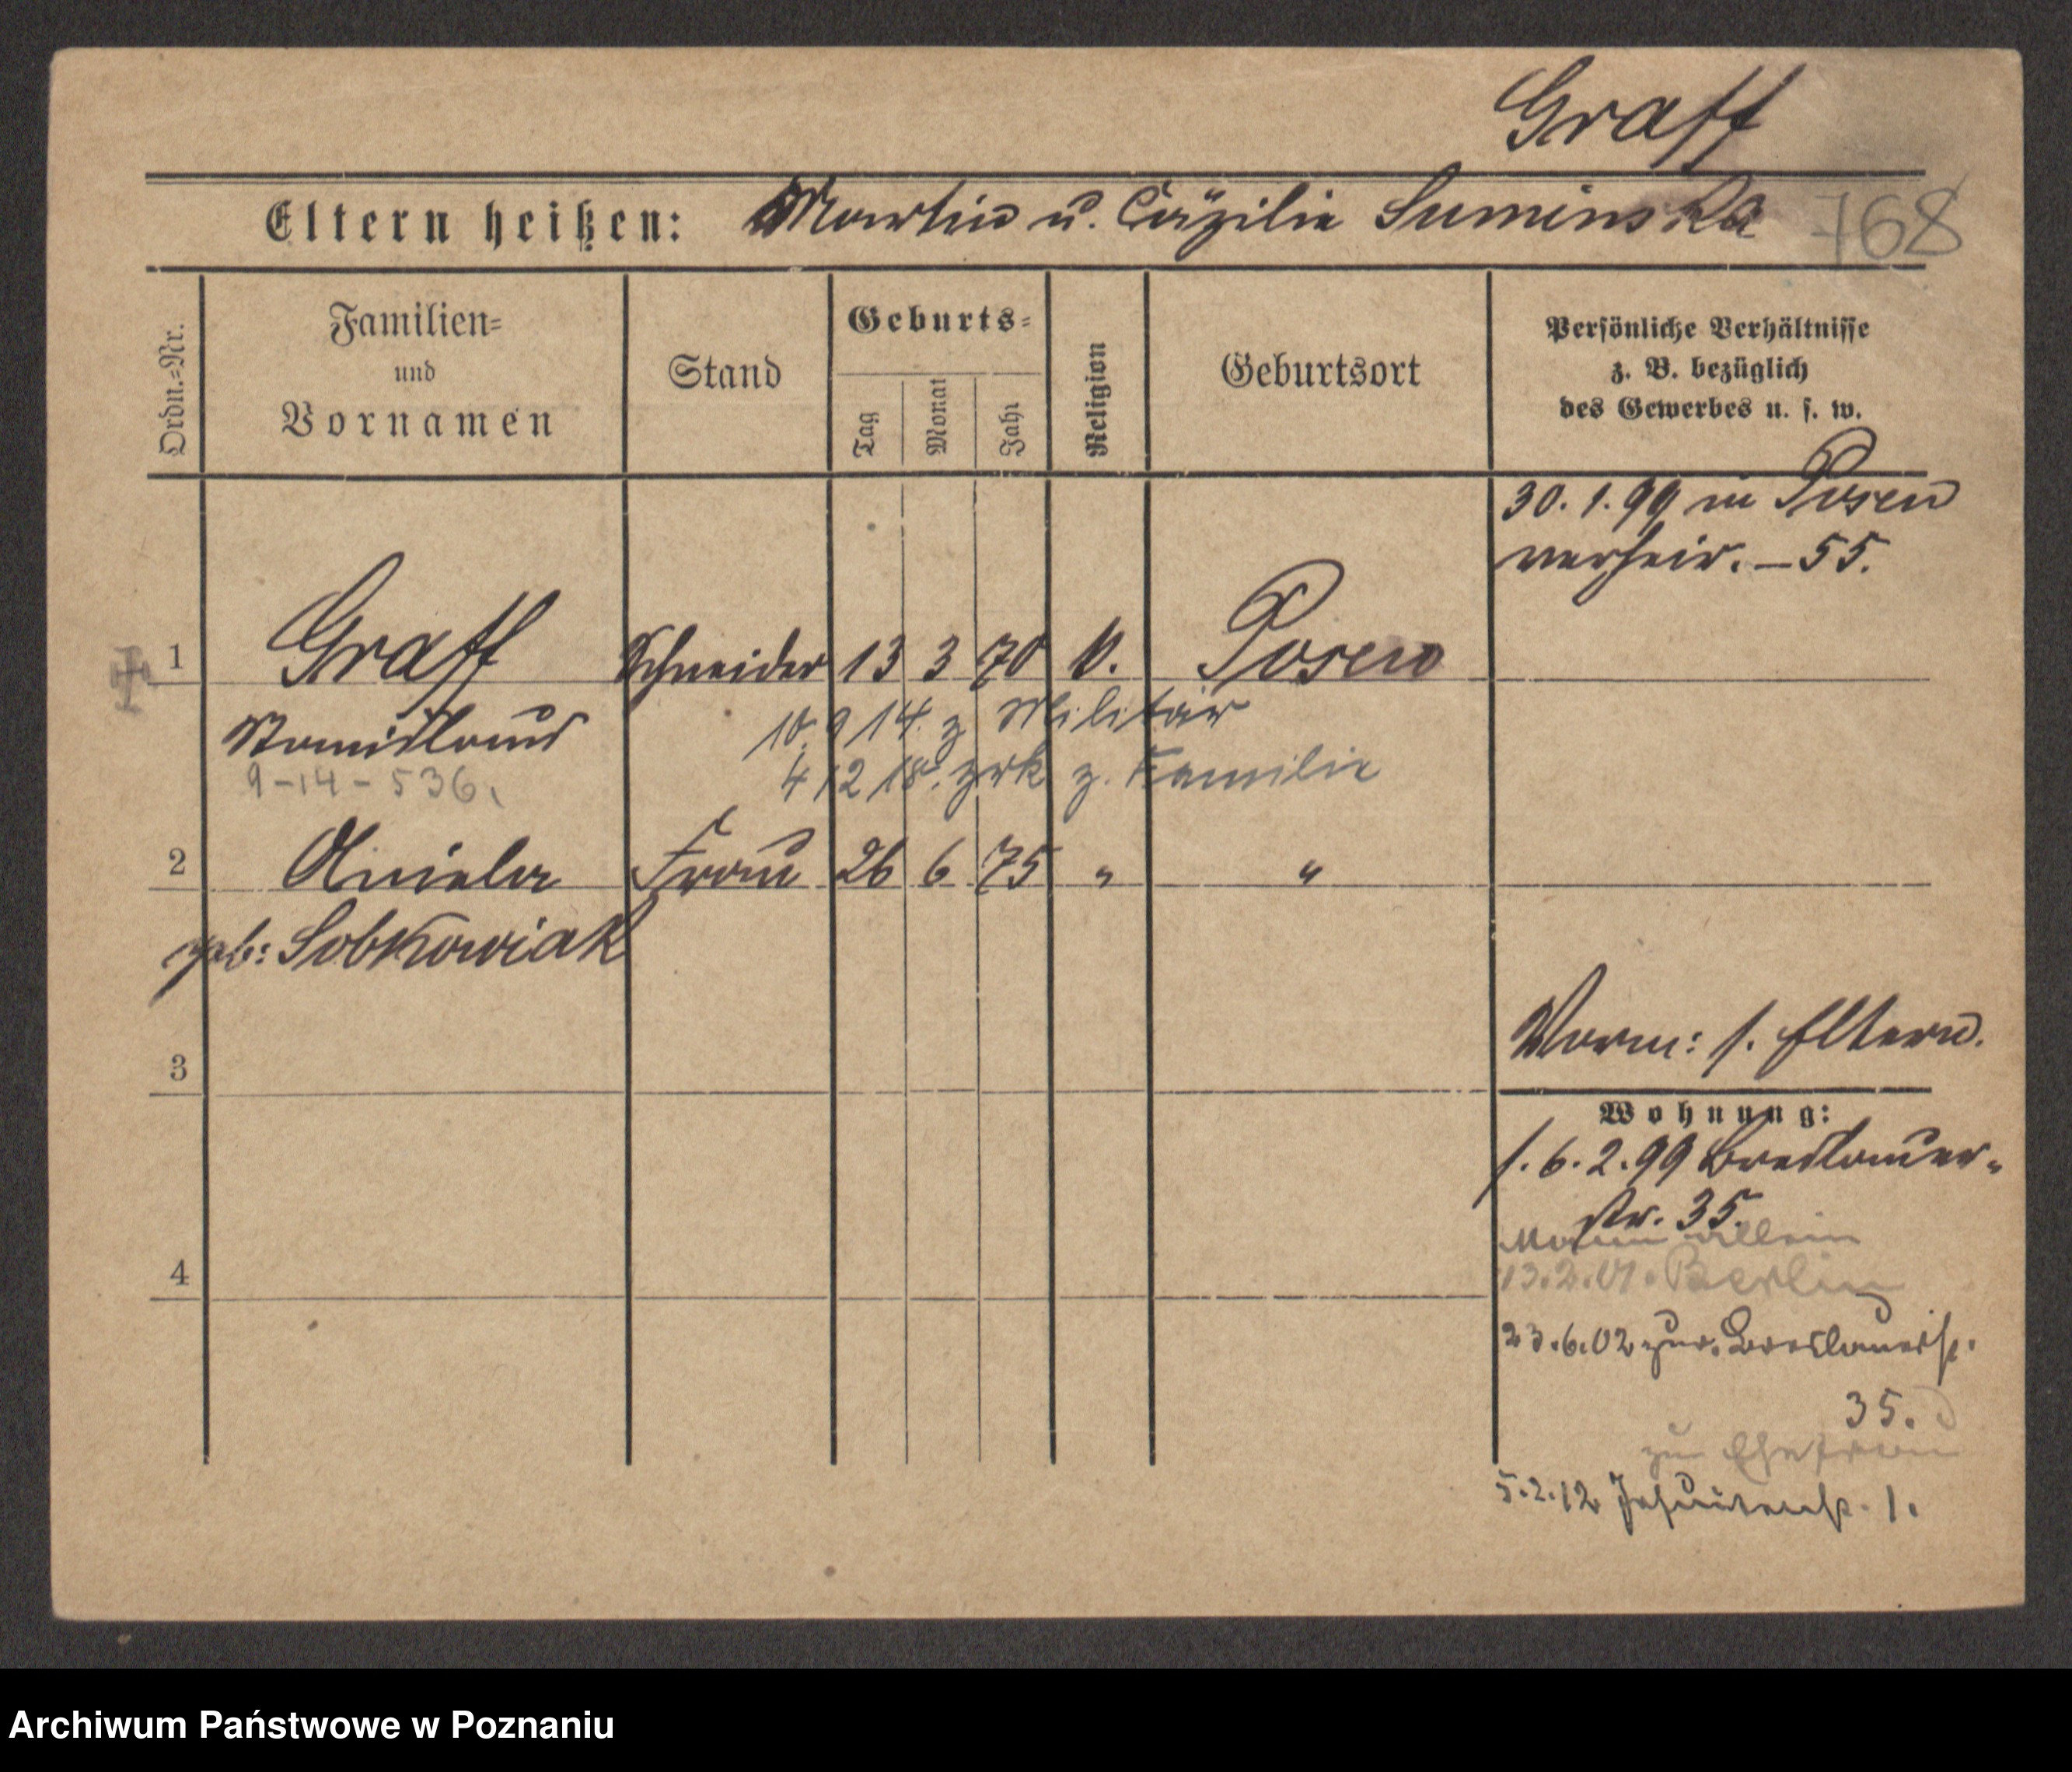 Graff
Eltern heißen: Martin u. Cäzilie Suminska
768
Ordn.=Nr.
Familien=
und
Vornamen
Stand
Geburts=
Tag
Monat
Jahr
Religion
Geburtsort
Persönliche Verhältnisse
z. B. bezüglich
des Gewerbes u. s. w.
30.1.99 in Posen
verheir. – 55.
1 Graff Schneider 13 3 70 k. Posen
Stanislaus
10. 9 14. z Militär
9-14-536.
4 12 18. zrk z. Familie
2 Aniela Frau 26 6 75 " "
geb: Sobkowiak
Vorm: s. Eltern.
3
Wohnung:
s. 6.2.99 Breslauer-
str. 35.
Mann allein
13.2.01. Berlin
4
23.6.02 zur. Breslauerst.
35.
zur Ehefrau
5.2.12 Jesuitenst. 1.
Archiwum Państwowe w Poznaniu